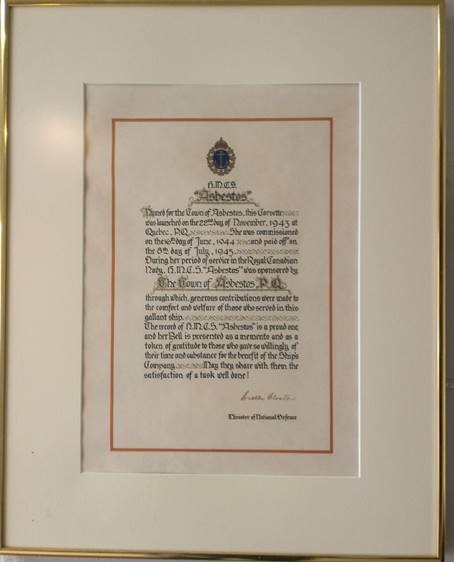 H.M.C.S.
Asbestos
Named for the Town of Asbestos, this Corvette
was launched on the 22nd day of November, 1943 at
Quebec, P.Q. She was commissioned
on the 16th day of June, 1944 and paid off on
the 8th day of July, 1945.
During her period of service in the Royal Canadian
Navy, H.M.C.S. "Asbestos" was sponsored by
The Town of Asbestos P.Q.
through which, generous contributions were made to
the comfort and welfare of those who served in this
gallant ship.
The record of H.M.C.S. "Asbestos" is a proud one
and her Bell is presented as a memento and as a
token of gratitude to those who gave so willingly of
their time and substance for the benefit of the Ship's
Company. May they share with them the
satisfaction of a task well done!
Minister of National Defence